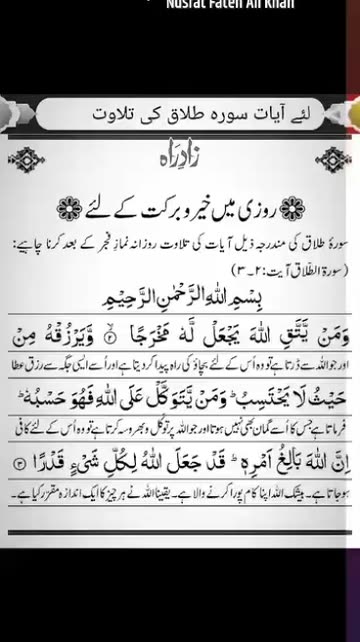 Nusrat Fateh Ali Khan
لئے آیات سورہ طلاق کی تلاوت
زادِراہ
روزی میں خیر و برکت کے لئے
سورۂ طلاق کی مندرجہ ذیل آیات کی تلاوت روزانہ نمازِ فجر کے بعد کرنا چاہیے:
(سورۃ الطّلاق آیت:۲۔۳)
بِسْمِ اللهِ الرَّحْمٰنِ الرَّحِيْمِ
وَمَنْ يَّتَّقِ اللهَ يَجْعَلْ لَّهٗ مَخْرَجًا ۝۲ وَّيَرْزُقْهُ مِنْ
اور جو اللہ سے ڈرتا ہے تو وہ اُس کے لئے بچاؤ کی راہ پیدا کر دیتا ہے اور اُسے ایسی جگہ سے رزق عطا
حَيْثُ لَا يَحْتَسِبُ ؕ وَمَنْ يَّتَوَكَّلْ عَلَى اللهِ فَهُوَ حَسْبُهٗ ؕ
فرماتا ہے جس کا اُسے گمان بھی نہیں ہوتا اور جو اللہ پر توکُّل و بھروسہ کرتا ہے تو وہ اُس کے لئے کافی
اِنَّ اللهَ بَالِغُ اَمْرِهٖ ؕ قَدْ جَعَلَ اللهُ لِكُلِّ شَيْءٍ قَدْرًا ۝۳
ہو جاتا ہے۔ بیشک اللہ اپنا کام پورا کرنے والا ہے۔ یقیناً اللہ نے ہر چیز کا ایک اندازہ مقرّر کیا ہے۔